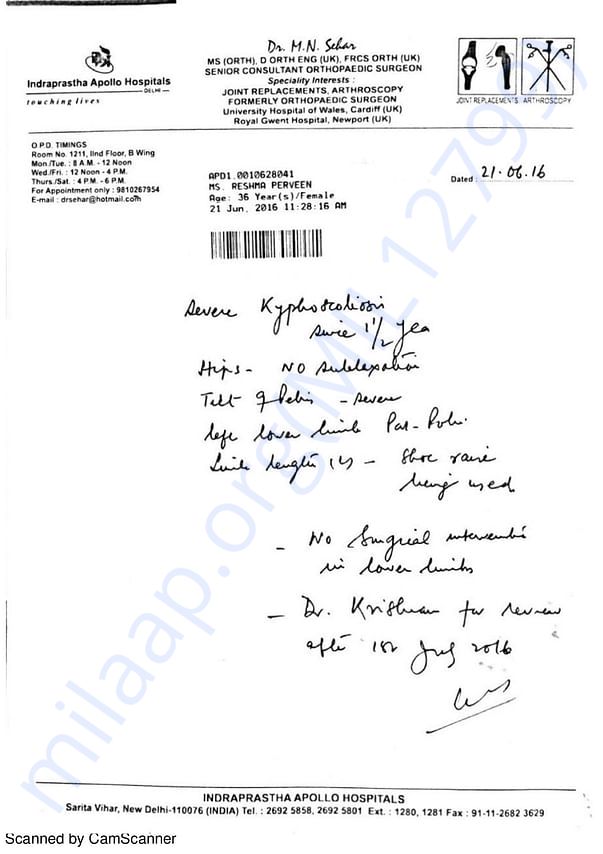 Dr. M.N. Sehar
MS (ORTH), D ORTH ENG (UK), FRCS ORTH (UK)
SENIOR CONSULTANT ORTHOPAEDIC SURGEON
Speciality Interests :
JOINT REPLACEMENTS, ARTHROSCOPY
FORMERLY ORTHOPAEDIC SURGEON
University Hospital of Wales, Cardiff (UK)
Royal Gwent Hospital, Newport (UK)
Indraprastha Apollo Hospitals
DELHI
touching lives
JOINT REPLACEMENTS ARTHROSCOPY
O.P.D. TIMINGS
Room No. 1211, IInd Floor, B Wing
Mon./Tue. : 8 A.M. - 12 Noon
Wed./Fri. : 12 Noon - 4 P.M.
Thurs./Sat. : 4 P.M. - 6 P.M.
For Appointment only : 9810267954
E-mail : drsehar@hotmail.com
APD1.0010628041
MS. RESHMA PERVEEN
Age: 36 Year(s)/Female
21 Jun, 2016 11:28:16 AM
Dated : 21.06.16
severe Kyphoscoliosis
since 1 1/2 yea
Hips - NO subluxation
Tilt of Pelvis - severe
left lower limb Polio
Limb length - Shoe raise
being used
- No Surgical intervention
in lower limbs
- Dr. Krishnan for review
after 1st July 2016
milaap.org(MIL127937
INDRAPRASTHA APOLLO HOSPITALS
Sarita Vihar, New Delhi-110076 (INDIA) Tel. : 2692 5858, 2692 5801 Ext. : 1280, 1281 Fax : 91-11-2682 3629
Scanned by CamScanner